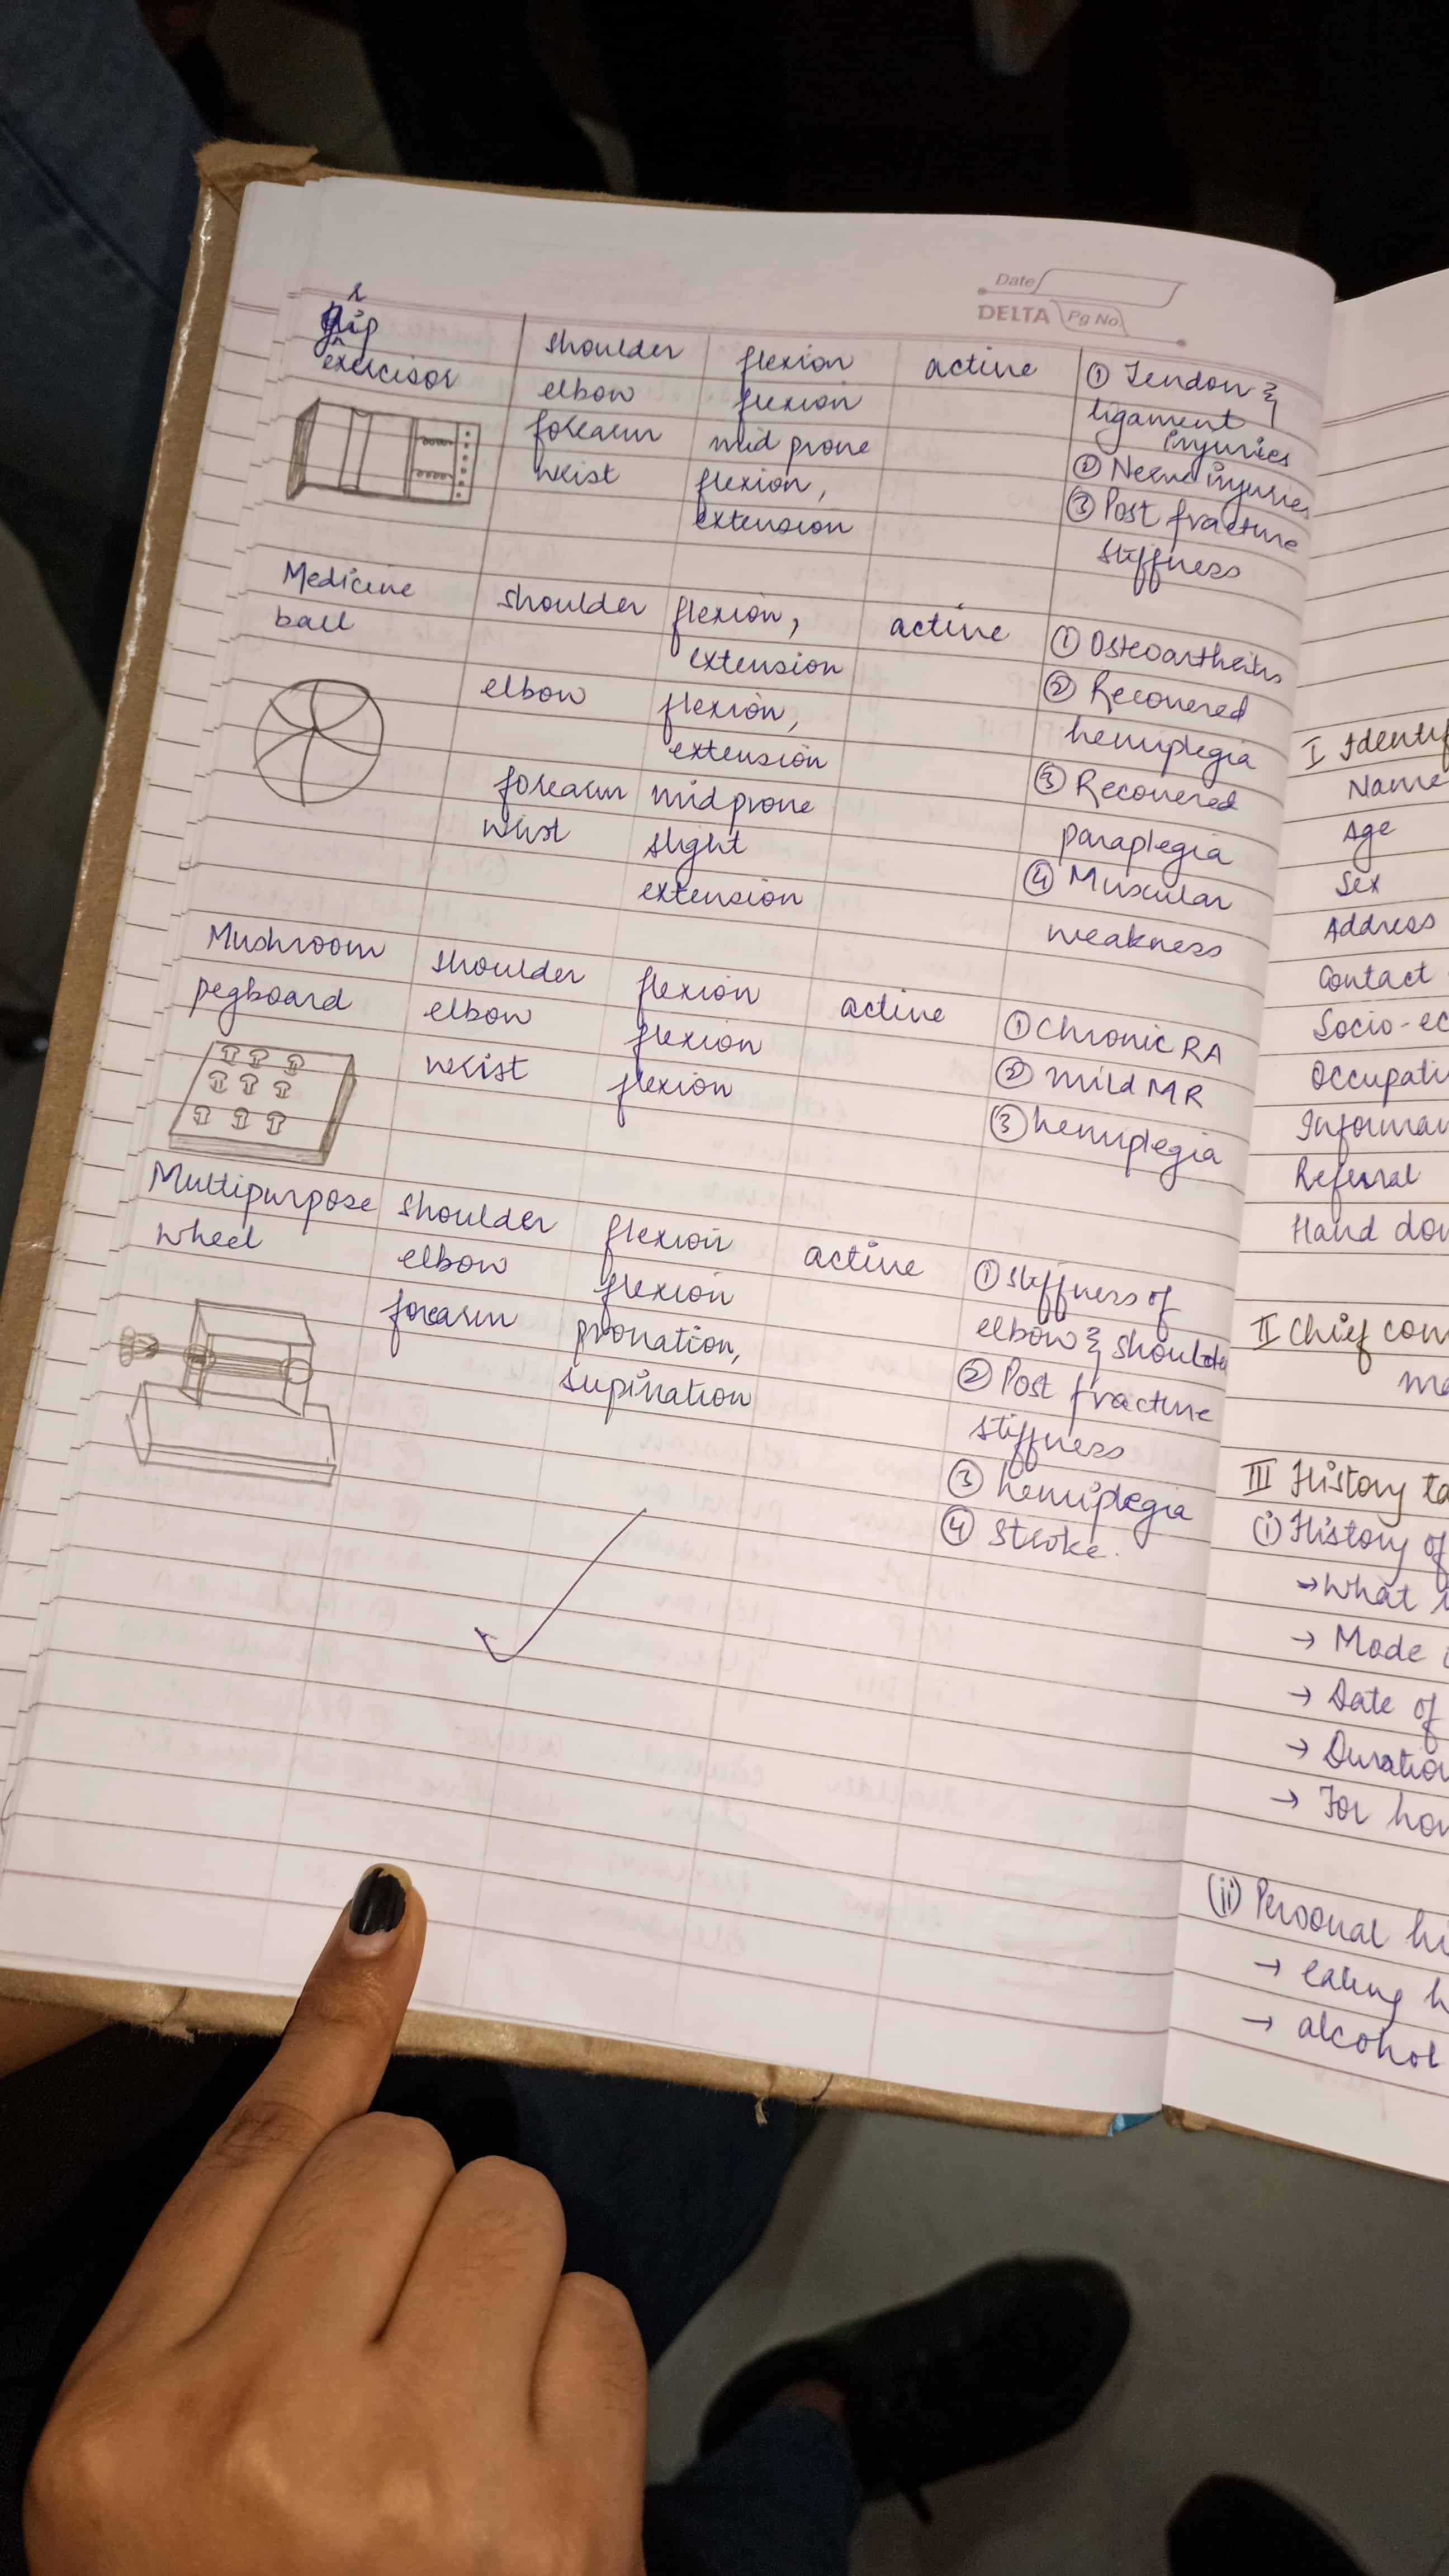 Date
DELTA Pg No
Grip
exercisor
shoulder
flexion
active
① Tendon &
elbow
flexion
ligament
injuries
forearm
mid prone
② Nerve injuries
wrist
flexion,
extension
③ Post fracture
stiffness
Medicine
ball
shoulder
flexion,
extension
active
① Osteoarthritis
elbow
flexion,
extension
② Recovered
hemiplegia
forearm
midprone
③ Recovered
paraplegia
wrist
slight
extension
④ Muscular
weakness
Mushroom
pegboard
shoulder
flexion
active
① Chronic RA
elbow
flexion
② mild MR
wrist
flexion
③ hemiplegia
Multipurpose
wheel
shoulder
flexion
active
① stiffness of
elbow & shoulder
elbow
flexion
② Post fracture
stiffness
forearm
pronation,
supination
③ hemiplegia
④ Stroke.
I
Name
Age
Sex
Address
Contact
Socio-ec
Occupati
Informan
Referral
Hand dom
II Chief com
III History ta
(i) History of
→ What
→ Mode
→ Date of
→ Duration
→ For how
(ii) Personal hi
→ eating h
→ alcohol